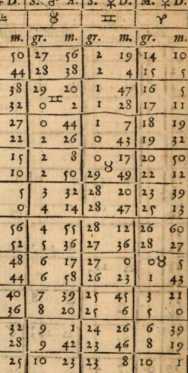 D. S. ♂ A. S. ♀ D. M. ☿ D.
♉ ♊ ♈
m. gr. m. gr. m. gr. m.
50 27 56 2 19 14 10
44 28 38 2 4 15 5
38 29 20 1 47 16 5
32 0 ♊ 2 1 28 17 11
27 0 44 1 7 18 19
22 2 26 0 43 19 32
15 2 8 0 17 20 50
10 2 50 29 ♉ 49 22 12
5 3 32 28 20 23 39
0 4 14 28 47 25 13
56 4 55 28 12 26 60
52 5 36 27 36 28 27
48 6 17 27 0 0 ♉ 5
44 6 58 26 23 1 43
40 7 39 25 45 3 21
36 8 20 25 6 5 0
32 9 1 24 26 6 39
28 9 42 23 46 8 19
25 10 23 23 8 10 1